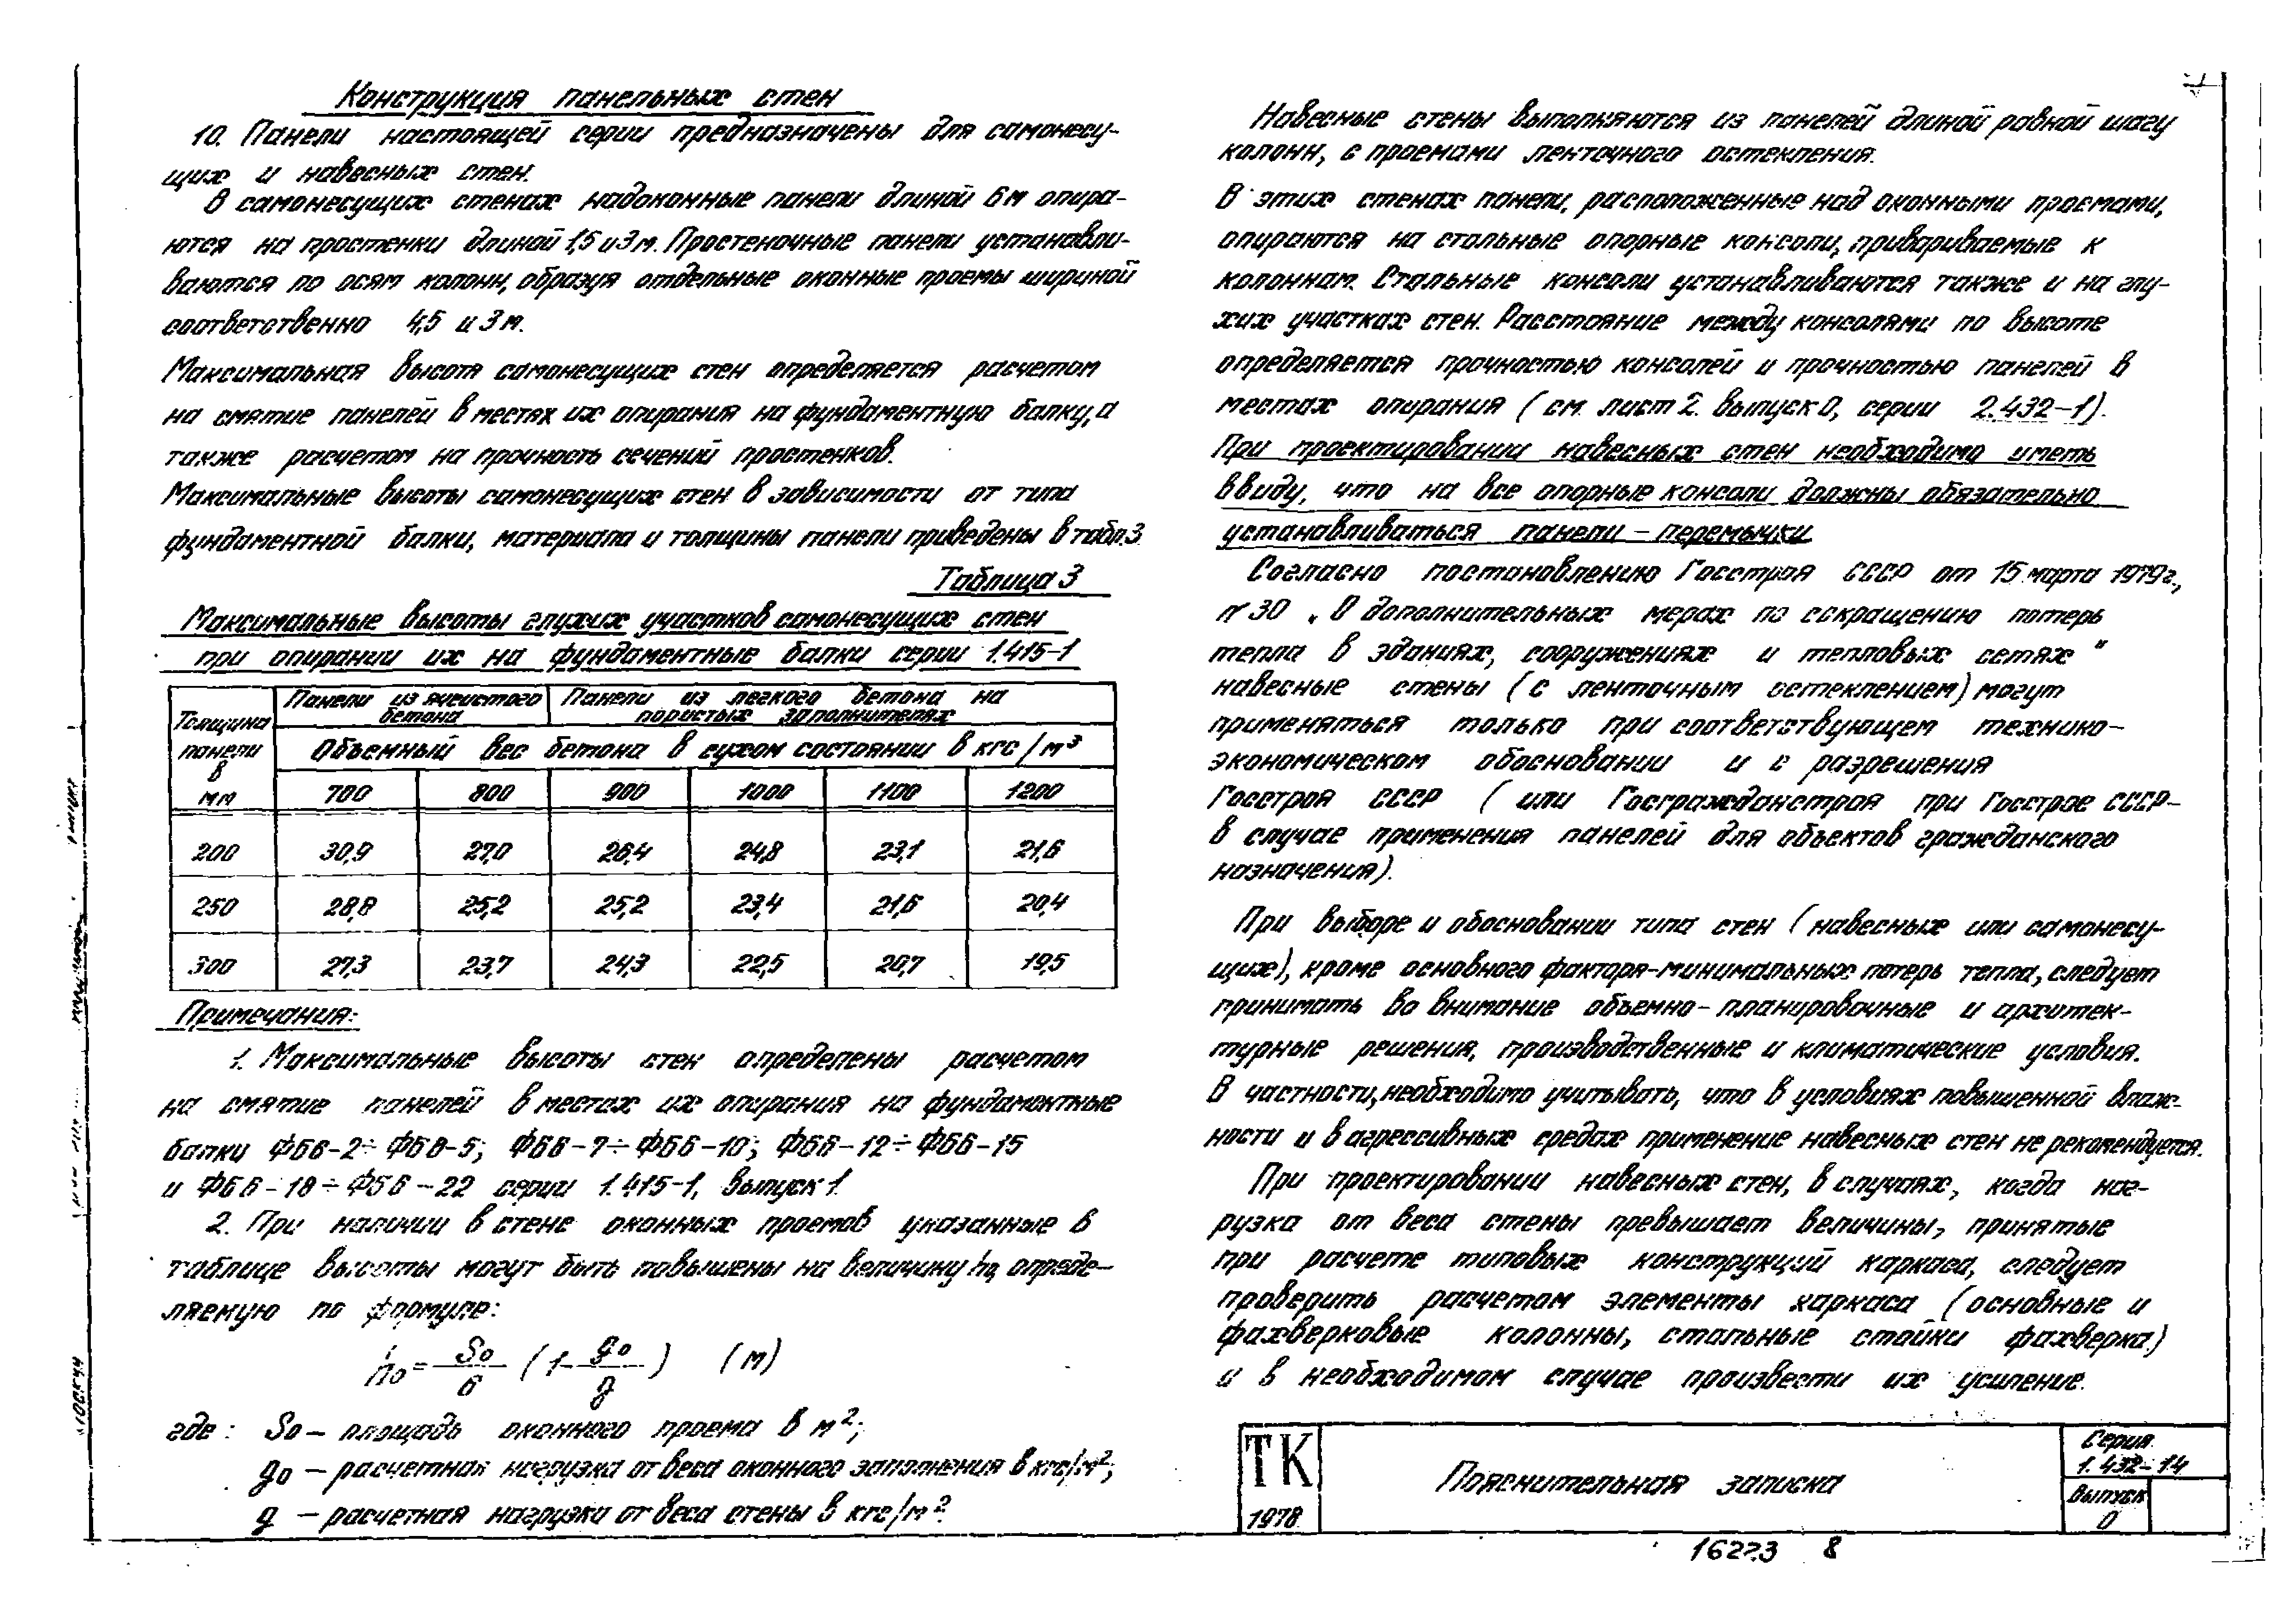 Конструкция панельных стен
10. Панели настоящей серии предназначены для самонесу-
щих и навесных стен.
В самонесущих стенах надоконные панели длиной 6м опира-
ются на простенки длиной 1,5 и 3 м. Простеночные панели устанавли-
ваются по осям колонн, образуя отдельные оконные проемы шириной
соответственно 4,5 и 3 м.
Максимальная высота самонесущих стен определяется расчетом
на смятие панелей в местах их опирания на фундаментную балку, а
также расчетом на прочность сечений простенков.
Максимальные высоты самонесущих стен в зависимости от типа
фундаментной балки, материала и толщины панели приведены в табл.3.
Таблица 3
Максимальные высоты глухих участков самонесущих стен
при опирании их на фундаментные балки серии 1.415-1
Толщина панели в мм
Панели из ячеистого бетона
Панели из легкого бетона на пористых заполнителях
Объемный вес бетона в сухом состоянии в кгс/м³
700 800 900 1000 1100 1200
200 30,9 27,0 26,4 24,8 23,1 21,6
250 28,8 25,2 25,2 23,4 21,6 20,4
300 27,3 23,7 24,3 22,5 20,7 19,5
Примечания:
1. Максимальные высоты стен определены расчетом
на смятие панелей в местах их опирания на фундаментные
балки ФБ6-2÷ФБ6-5; ФБ6-7÷ФБ6-10; ФБ6-12÷ФБ6-15
и ФБ6-18÷ФБ6-22 серии 1.415-1, выпуск 1.
2. При наличии в стене оконных проемов указанные в
таблице высоты могут быть повышены на величину h₀, опреде-
ляемую по формуле:
h₀ = S₀/6 (1 - g₀/g) (м)
где: S₀ – площадь оконного проема в м²;
g₀ – расчетная нагрузка от веса оконного заполнения в кгс/м²;
g – расчетная нагрузка от веса стены в кгс/м².
Навесные стены выполняются из панелей длиной равной шагу
колонн, с проемами ленточного остекления.
В этих стенах панели, расположенные над оконными проемами,
опираются на стальные опорные консоли, привариваемые к
колоннам. Стальные консоли устанавливаются также и на глу-
хих участках стен. Расстояние между консолями по высоте
определяется прочностью консолей и прочностью панелей в
местах опирания (см. лист 2. выпуск 0, серии 2.432-1).
При проектировании навесных стен необходимо иметь
ввиду, что на все опорные консоли должны обязательно
устанавливаться панели – перемычки
Согласно постановлению Госстроя СССР от 15 марта 1979г.,
№ 30 „О дополнительных мерах по сокращению потерь
тепла в зданиях, сооружениях и тепловых сетях"
навесные стены (с ленточным остеклением) могут
применяться только при соответствующем технико-
экономическом обосновании и с разрешения
Госстроя СССР (или Госгражданстроя при Госстрое СССР-
в случае применения панелей для объектов гражданского
назначения).
При выборе и обосновании типа стен (навесных или самонесу-
щих), кроме основного фактора-минимальных потерь тепла, следует
принимать во внимание объемно-планировочные и архитек-
турные решения, производственные и климатические условия.
В частности, необходимо учитывать, что в условиях повышенной влаж-
ности и в агрессивных средах применение навесных стен не рекомендуется.
При проектировании навесных стен, в случаях, когда наг-
рузка от веса стены превышает величины, принятые
при расчете типовых конструкций каркаса, следует
проверить расчетом элементы каркаса (основные и
фахверковые колонны, стальные стойки фахверка)
и в необходимом случае произвести их усиление.
ТК
1978
Пояснительная записка
Серия
1.432-14
Выпуск
0
16223 8